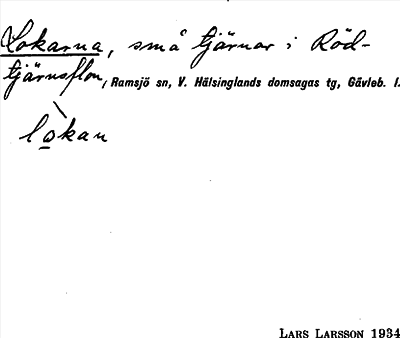 Lokarna, små tjärnar i Röd-
tjärnsflon, Ramsjö sn, V. Hälsinglands domsagas tg, Gävleb. l.
lo̲kan
LARS LARSSON 1934